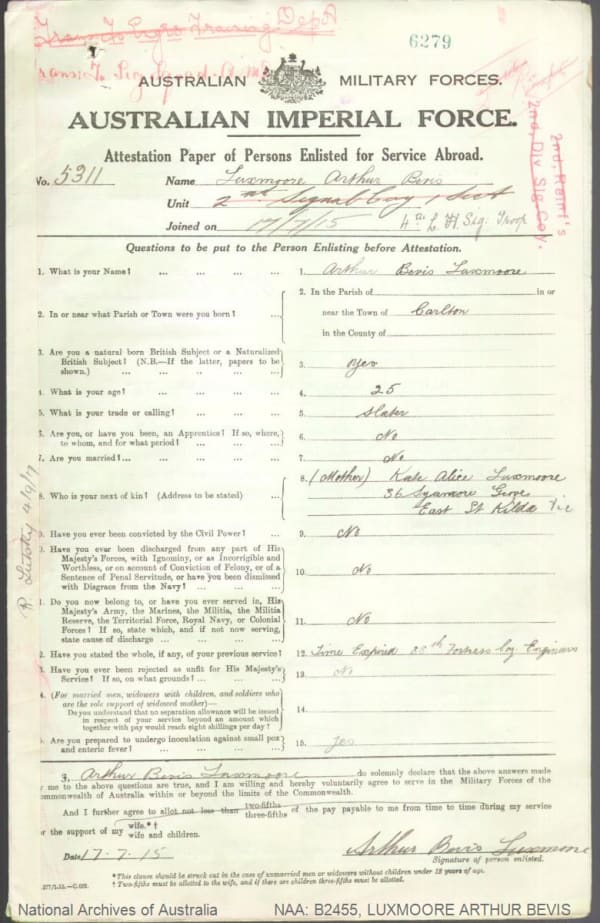 Trans. To Engrs Training Depôt
6279
Trans: To Sig Squad A.M.
AUSTRALIAN MILITARY FORCES.
AUSTRALIAN IMPERIAL FORCE.
Attestation Paper of Persons Enlisted for Service Abroad.
No. 5311 Name Luxmoore Arthur Bevis
Unit 2nd Signal Coy 1 Sect
Joined on 17/7/15 4th L H Sig: Troop
2nd. Reinf's
2nd. Div. Sig. Coy.
Questions to be put to the Person Enlisting before Attestation.
1. What is your Name? ... ... ... ... 1. Arthur Bevis Luxmoore
2. In or near what Parish or Town were you born? ... 2. In the Parish of in or
near the Town of Carlton
in the County of
3. Are you a natural born British Subject or a Naturalized
British Subject? (N.B.—If the latter, papers to be
shown.) ... ... ... ... ... 3. Yes
4. What is your age? ... ... ... ... 4. 25
5. What is your trade or calling? ... ... ... 5. Slater
6. Are you, or have you been, an Apprentice? If so, where,
to whom, and for what period? ... ... ... 6. No
7. Are you married? ... ... ... ... 7. No
8. Who is your next of kin? (Address to be stated) ... 8. (Mother) Kate Alice Luxmoore
36 Sycamore Grove
East St Kilda Vic
9. Have you ever been convicted by the Civil Power? ... 9. No
0. Have you ever been discharged from any part of His
Majesty's Forces, with Ignominy, or as Incorrigible and
Worthless, or on account of Conviction of Felony, or of a
Sentence of Penal Servitude, or have you been dismissed
with Disgrace from the Navy? ... ... ... 10. No
1. Do you now belong to, or have you ever served in, His
Majesty's Army, the Marines, the Militia, the Militia
Reserve, the Territorial Force, Royal Navy, or Colonial
Forces? If so, state which, and if not now serving,
state cause of discharge ... ... ... 11. No
2. Have you stated the whole, if any, of your previous service? 12. Time Expired 38th Fortress Coy Engineers
3. Have you ever been rejected as unfit for His Majesty's
Service? If so, on what grounds? ... ... 13. No
4. (For married men, widowers with children, and soldiers who
are the sole support of widowed mother)—
Do you understand that no separation allowance will be issued
in respect of your service beyond an amount which
together with pay would reach eight shillings per day? 14.
5. Are you prepared to undergo inoculation against small pox
and enteric fever? ... ... ... ... 15. Yes
I, Arthur Bevis Luxmoore do solemnly declare that the above answers made
by me to the above questions are true, and I am willing and hereby voluntarily agree to serve in the Military Forces of the
Commonwealth of Australia within or beyond the limits of the Commonwealth.
And I further agree to allot not less than two-fifths three-fifths of the pay payable to me from time to time during my service
for the support of my wife.*† wife and children.
Date 17.7.15 Arthur Bevis Luxmoore
Signature of person enlisted.
*This clause should be struck out in the case of unmarried men or widowers without children under 18 years of age.
† Two-fifths must be allotted to the wife, and if there are children three-fifths must be allotted.
National Archives of Australia NAA: B2455, LUXMOORE ARTHUR BEVIS